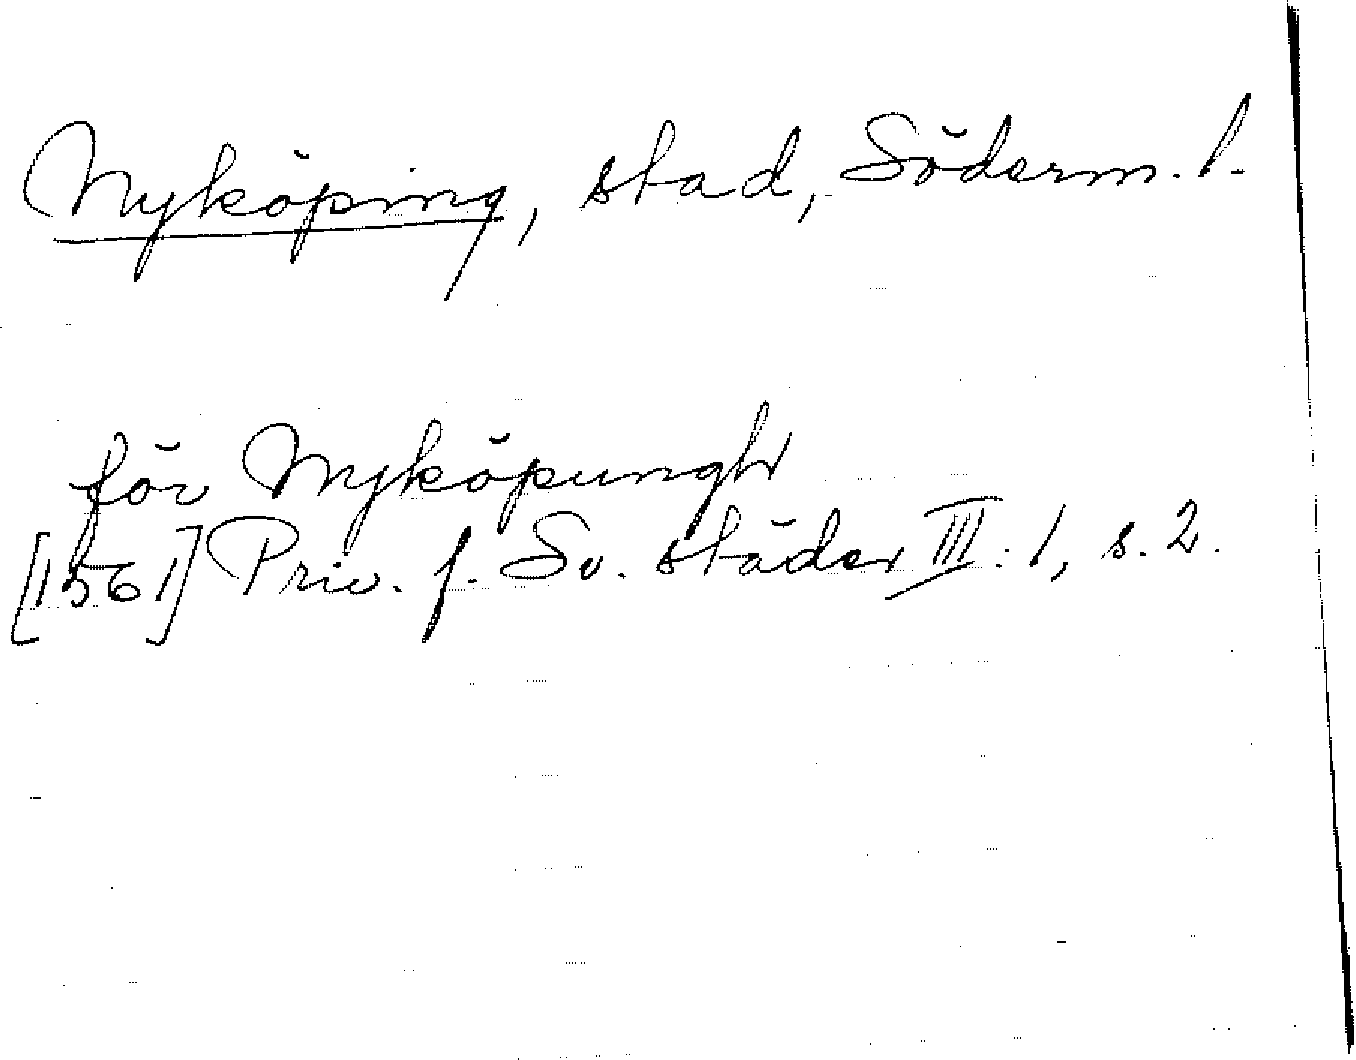 Nyköping, stad, Söderm. l.
för Nyköpungh
[1561] Priv. f. Sv. städer III: 1, s. 2.